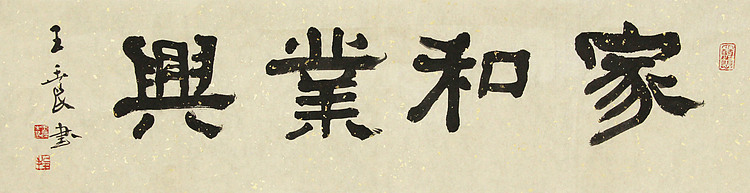 家和業興
王 書